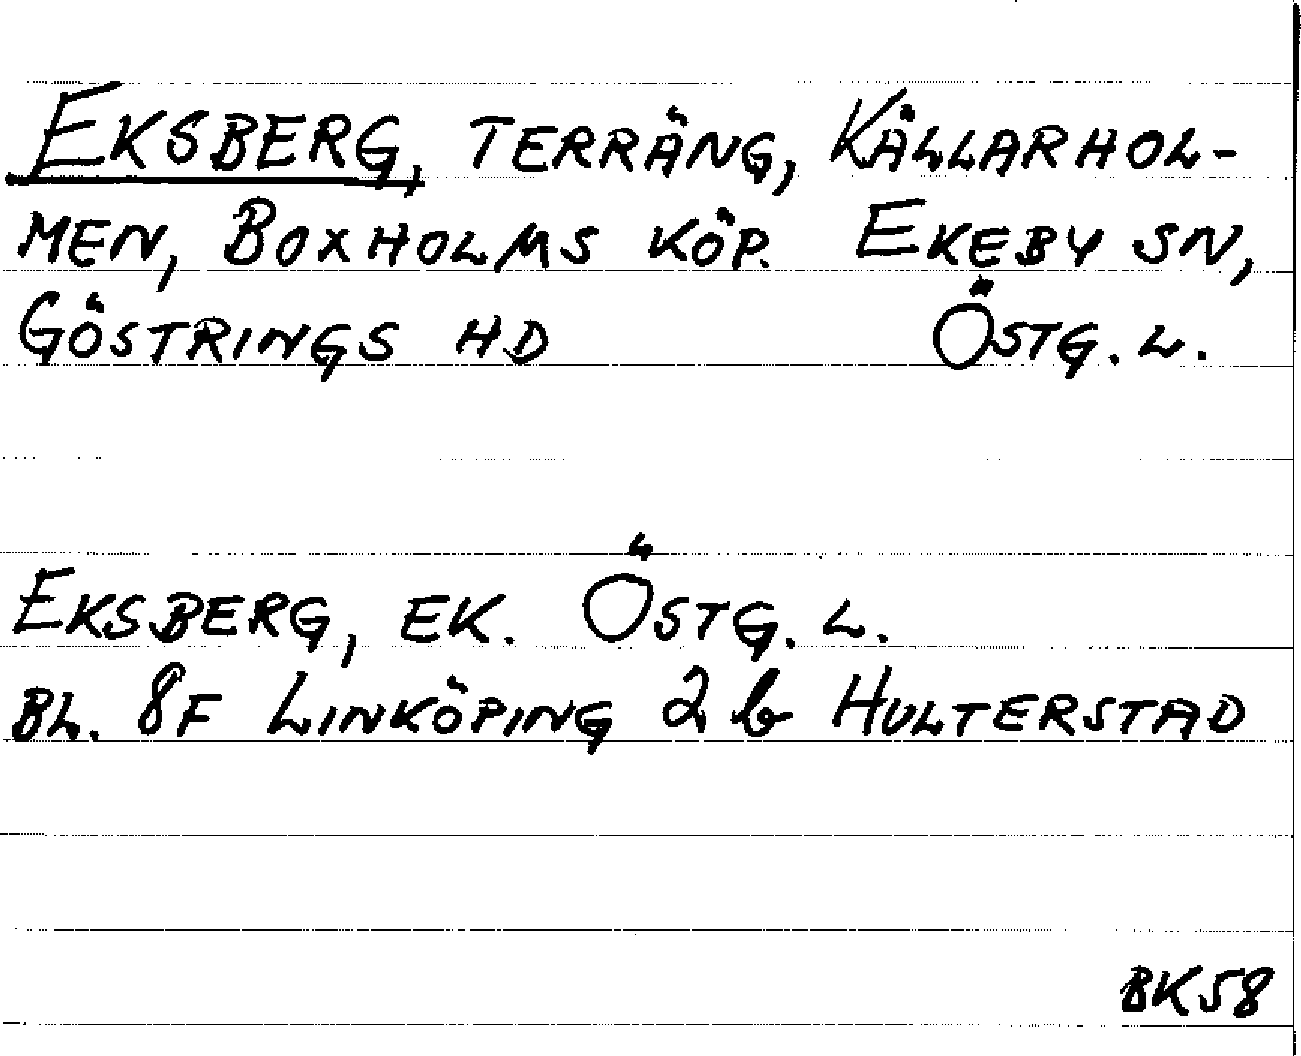 EKSBERG, TERRÄNG, KÄLLARHOL-
MEN, BOXHOLMS KÖP. EKEBY SN,
GÖSTRINGS HD ÖSTG. L.
EKSBERG, EK. ÖSTG. L.
BL. 8F LINKÖPING 2b HULTERSTAD
BK58